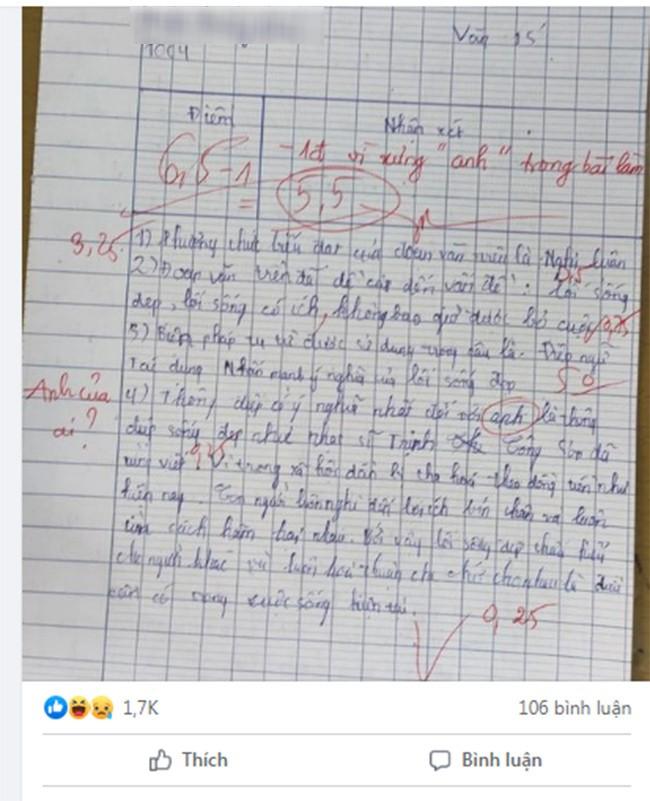 Văn 15'
Điểm
Nhận xét
6,5 - 1
= 5,5
-1đ vì xưng "anh" trong bài làm
3,25
1) Phương thức biểu đạt của đoạn văn trên là Nghị luận
2) Đoạn văn trên đã đề cập đến vấn đề: lối sống
đẹp, lối sống có ích, không bao giờ được bỏ cuộc
3) Biện pháp tu từ được sử dụng trong câu là: Điệp ngữ
Tác dụng Nhấn mạnh ý nghĩa của lối sống đẹp
Anh của
ai?
4) Thông điệp có ý nghĩa nhất đối với anh là thông
điệp sống đẹp như nhạc sĩ Trịnh Công Sơn đã
từng viết. Vì trong xã hội dần bị tha hoá theo dòng như
hiện nay. Con người luôn nghĩ đến lợi ích bản thân và luôn
tìm cách hãm hại nhau. Bởi vậy lối sống đẹp
người khác và luôn hoà thuận
cần có trong cuộc sống hiện tại.
0,25
1,7K
106 bình luận
Thích
Bình luận